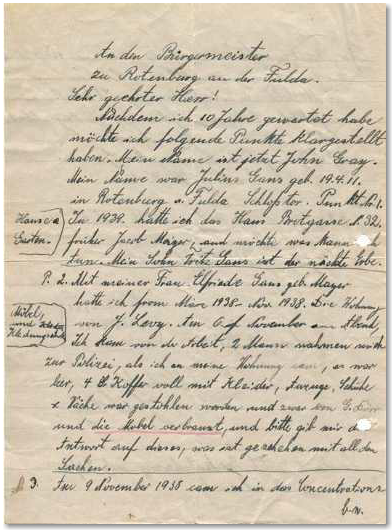 An den Bürgermeister
zu Rotenburg an der Fulda.
Sehr geehrter Herr!
Nachdem ich 10 Jahre gewartet habe
möchte ich folgende Punkte klargestellt
haben. Mein Name ist jetzt John Gray.
Mein Name war Julius Gans geb. 19.4.11.
in Rotenburg a. Fulda Schloßtor. Punkt N. 1.
Haus &
Garten.
In 1939. hatte ich das Haus Brotgasse N. 32,
früher Jacob Mayer, und möchte was Mann
tun. Mein Sohn Gans ist der nächste Erbe.
P. 2. Mit meiner Frau Elfriede Gans geb. Mayer
Möbel,
und
Kleidungsstücke
hatte ich from März 1938 - Nov. 1938. Die Wohnung
von J. Levy. Am 6 of November am Abend,
Ich kam von der Arbeit, 2 Mann nahmen mich
zur Polizei, als ich an meine Wohnung cam, er war
leer, 4 Koffer voll mit Kleider, Anzuge, Schuhe
& Wäche war gestohlen worden und zwar von G.
und die Möbel verbrannt, und bitte gib mir
Antwort auf dieses, was ist geschehen mit all den
Sachen.
P 3. Im 9 November 1938 cam ich in das Concentrations
b.w.